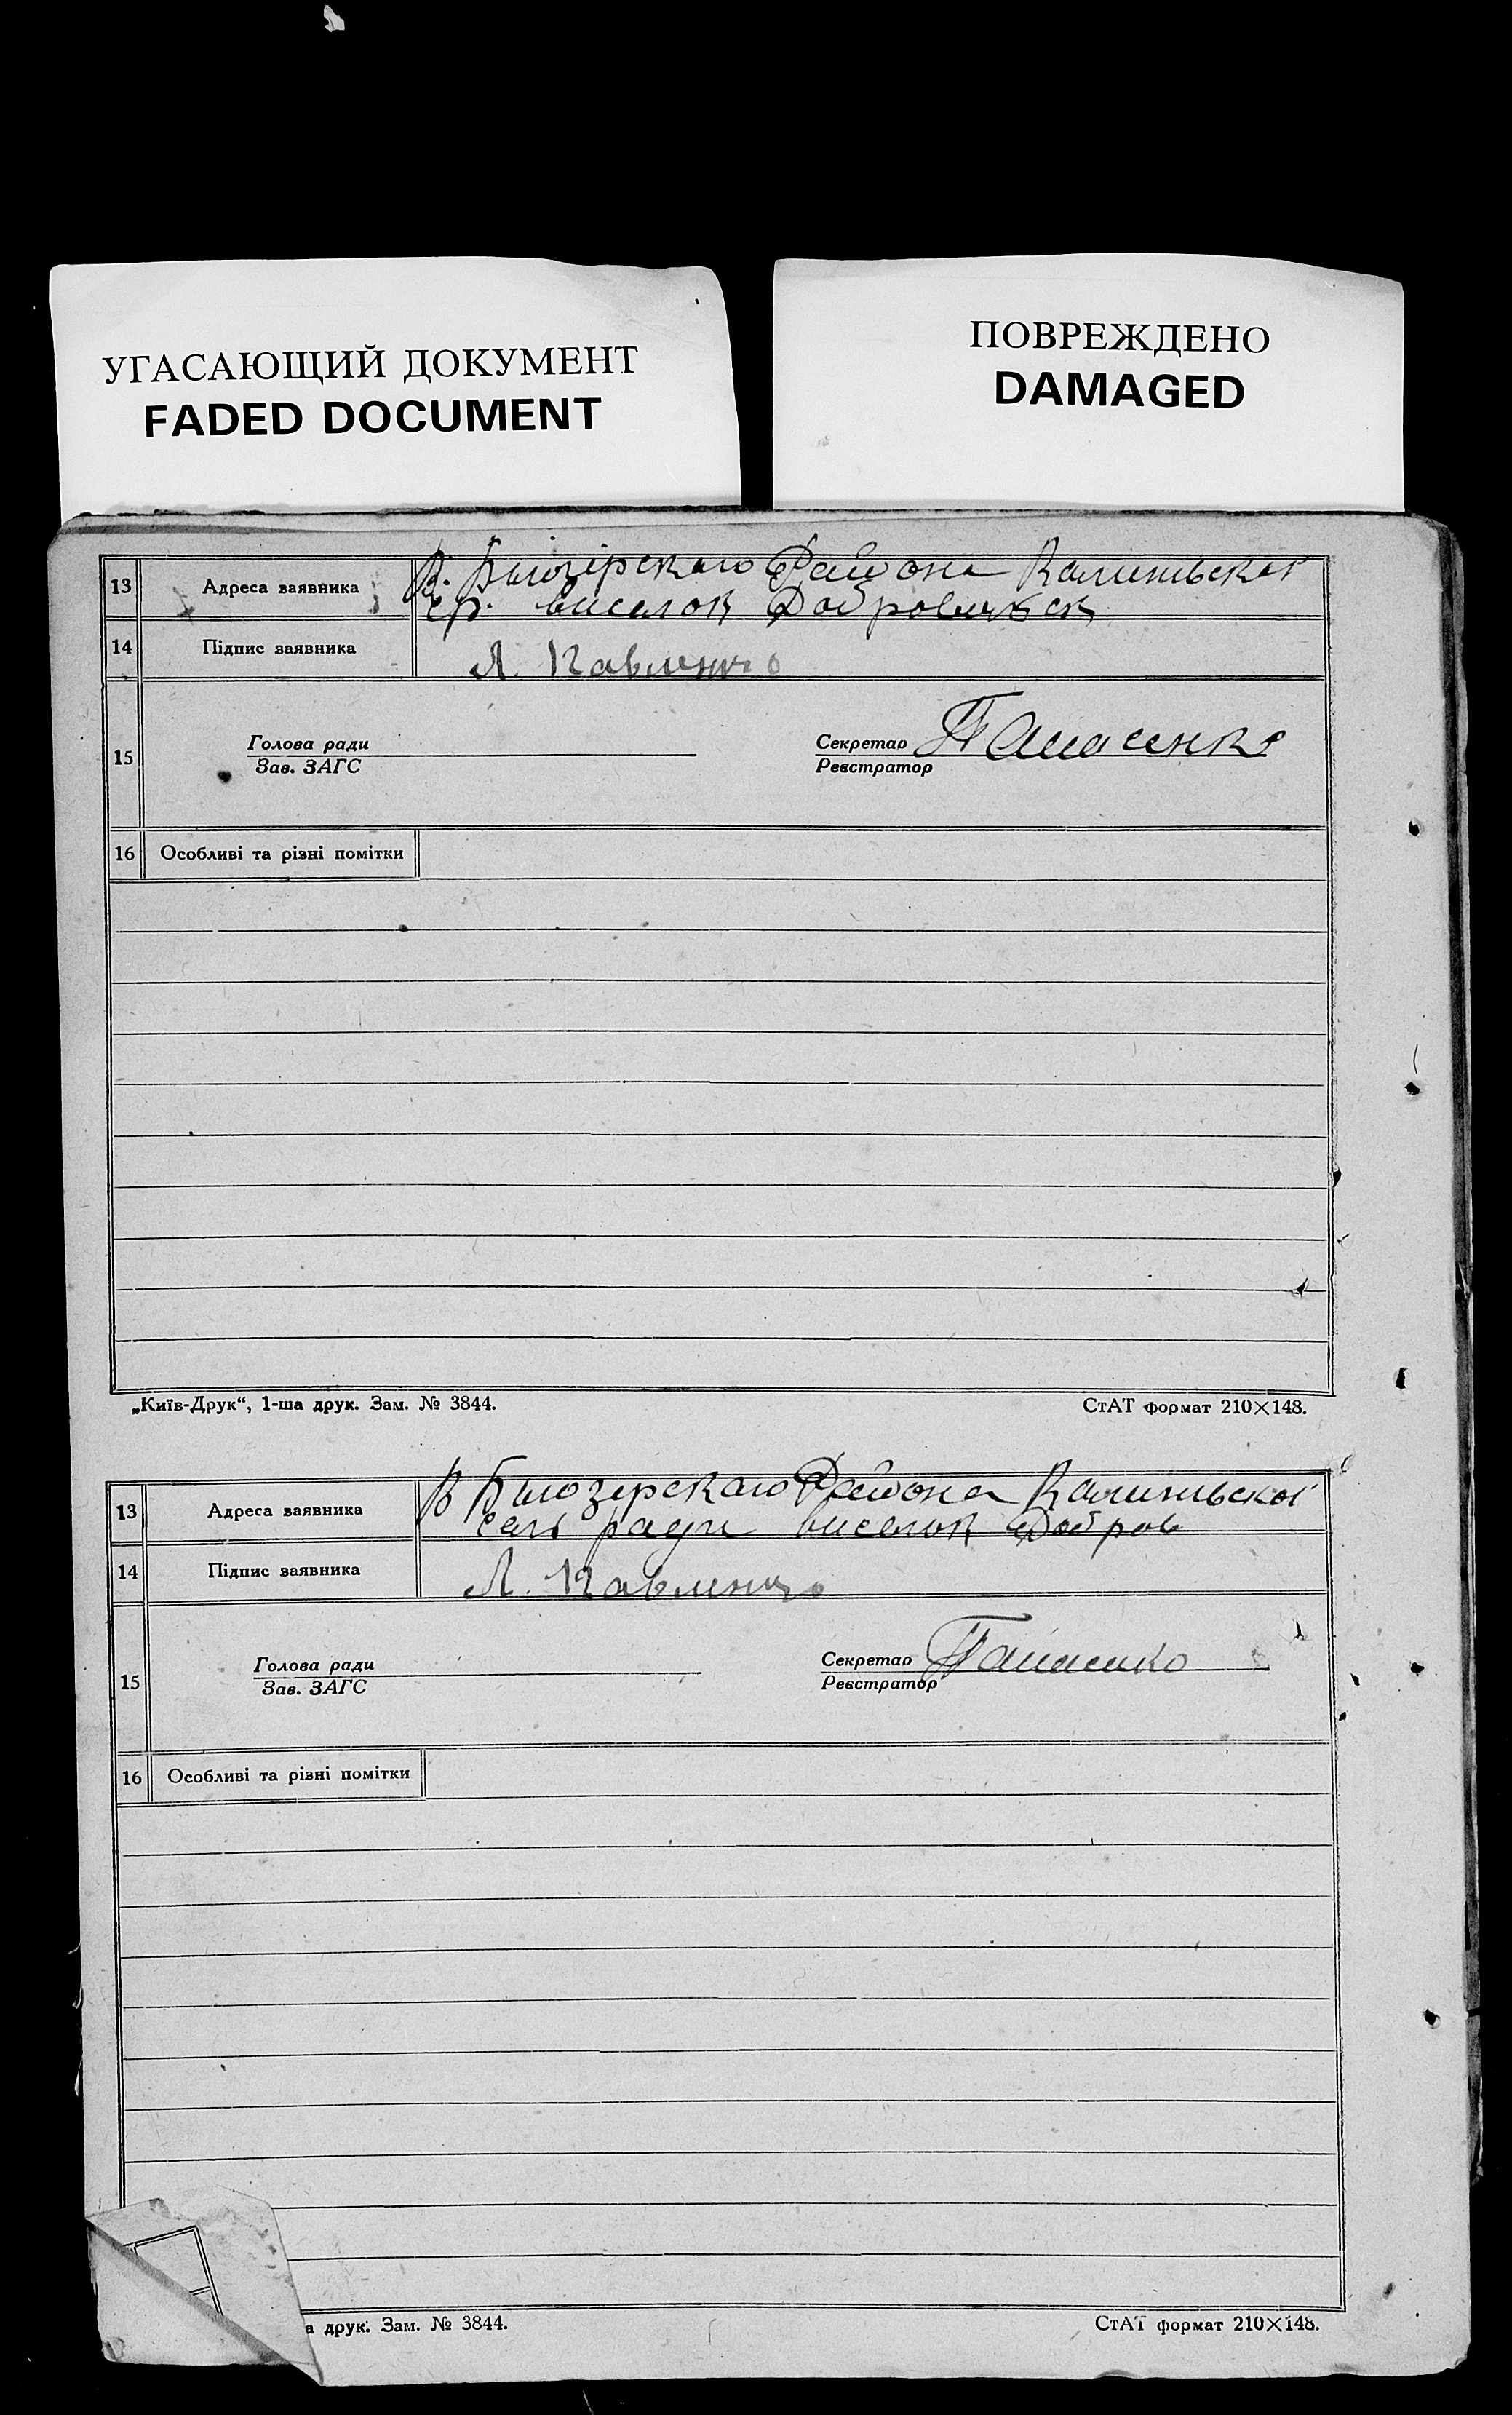 УГАСАЮЩИЙ ДОКУМЕНТ
FADED DOCUMENT
ПОВРЕЖДЕНО
DAMAGED
13 Адреса заявника В. Района
виселок
14 Підпис заявника Л. Павленко
15 Голова ради Секретар Панасенко
Зав. ЗАГС Реєстратор
16 Особливі та різні помітки
„Київ-Друк“, 1-ша друк. Зам. № 3844. СтАТ формат 210×148.
13 Адреса заявника В Района
сель ради виселок Добров
14 Підпис заявника Л. Павленко
15 Голова ради Секретар Панасенко
Зав. ЗАГС Реєстратор
16 Особливі та різні помітки
а друк. Зам. № 3844. СтАТ формат 210×148.